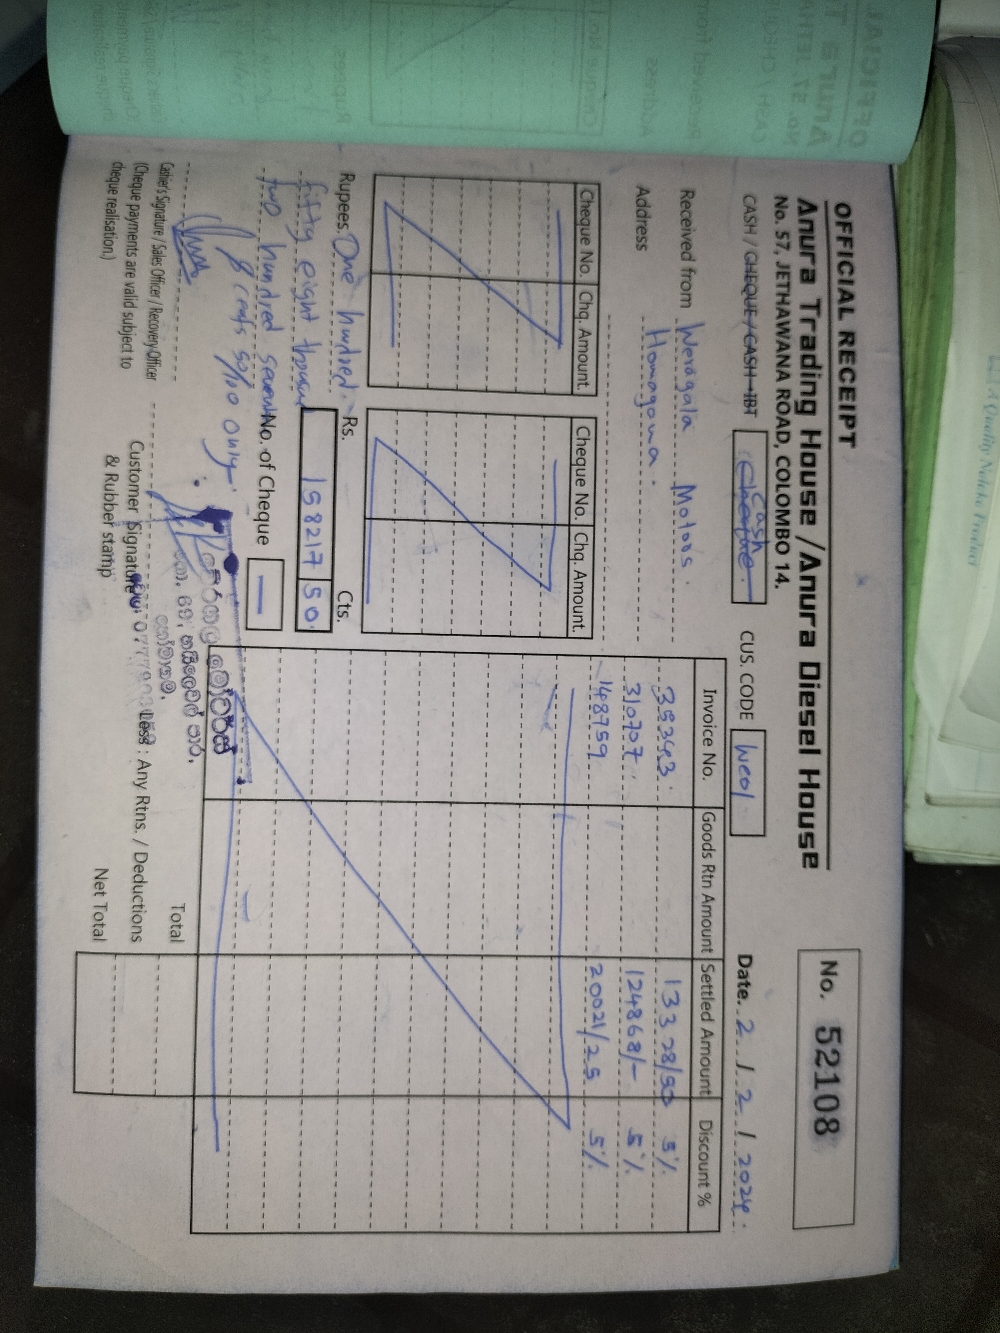 OFFICIAL RECEIPT
Anura Trading House / Anura Diesel House
No. 57, JETHAWANA ROAD, COLOMBO 14.
No. 52108
CASH / CHEQUE / CASH IBT
Cash
CUS. CODE We01
Date. 2 / 2 / 2024.
Received from Weragala Motors.
Address Homagama.
Cheque No. Chq. Amount. Cheque No. Chq. Amount.
Invoice No. Goods Rtn Amount Settled Amount Discount %
35343. 13328/50 5%
310707 124868/- 5%
148759 20021/25 5%
Rs. Cts.
158217 50.
Rupees. One hundred
fifty eight thousand
two hundred seventeen
& cents 50/= only.
No. of Cheque —
Total
Less : Any Rtns. / Deductions
Net Total
Cashier's Signature / Sales Officer / Recovery Officer
(Cheque payments are valid subject to
cheque realisation.)
Customer Signature
& Rubber stamp
A Quality Noteke Product